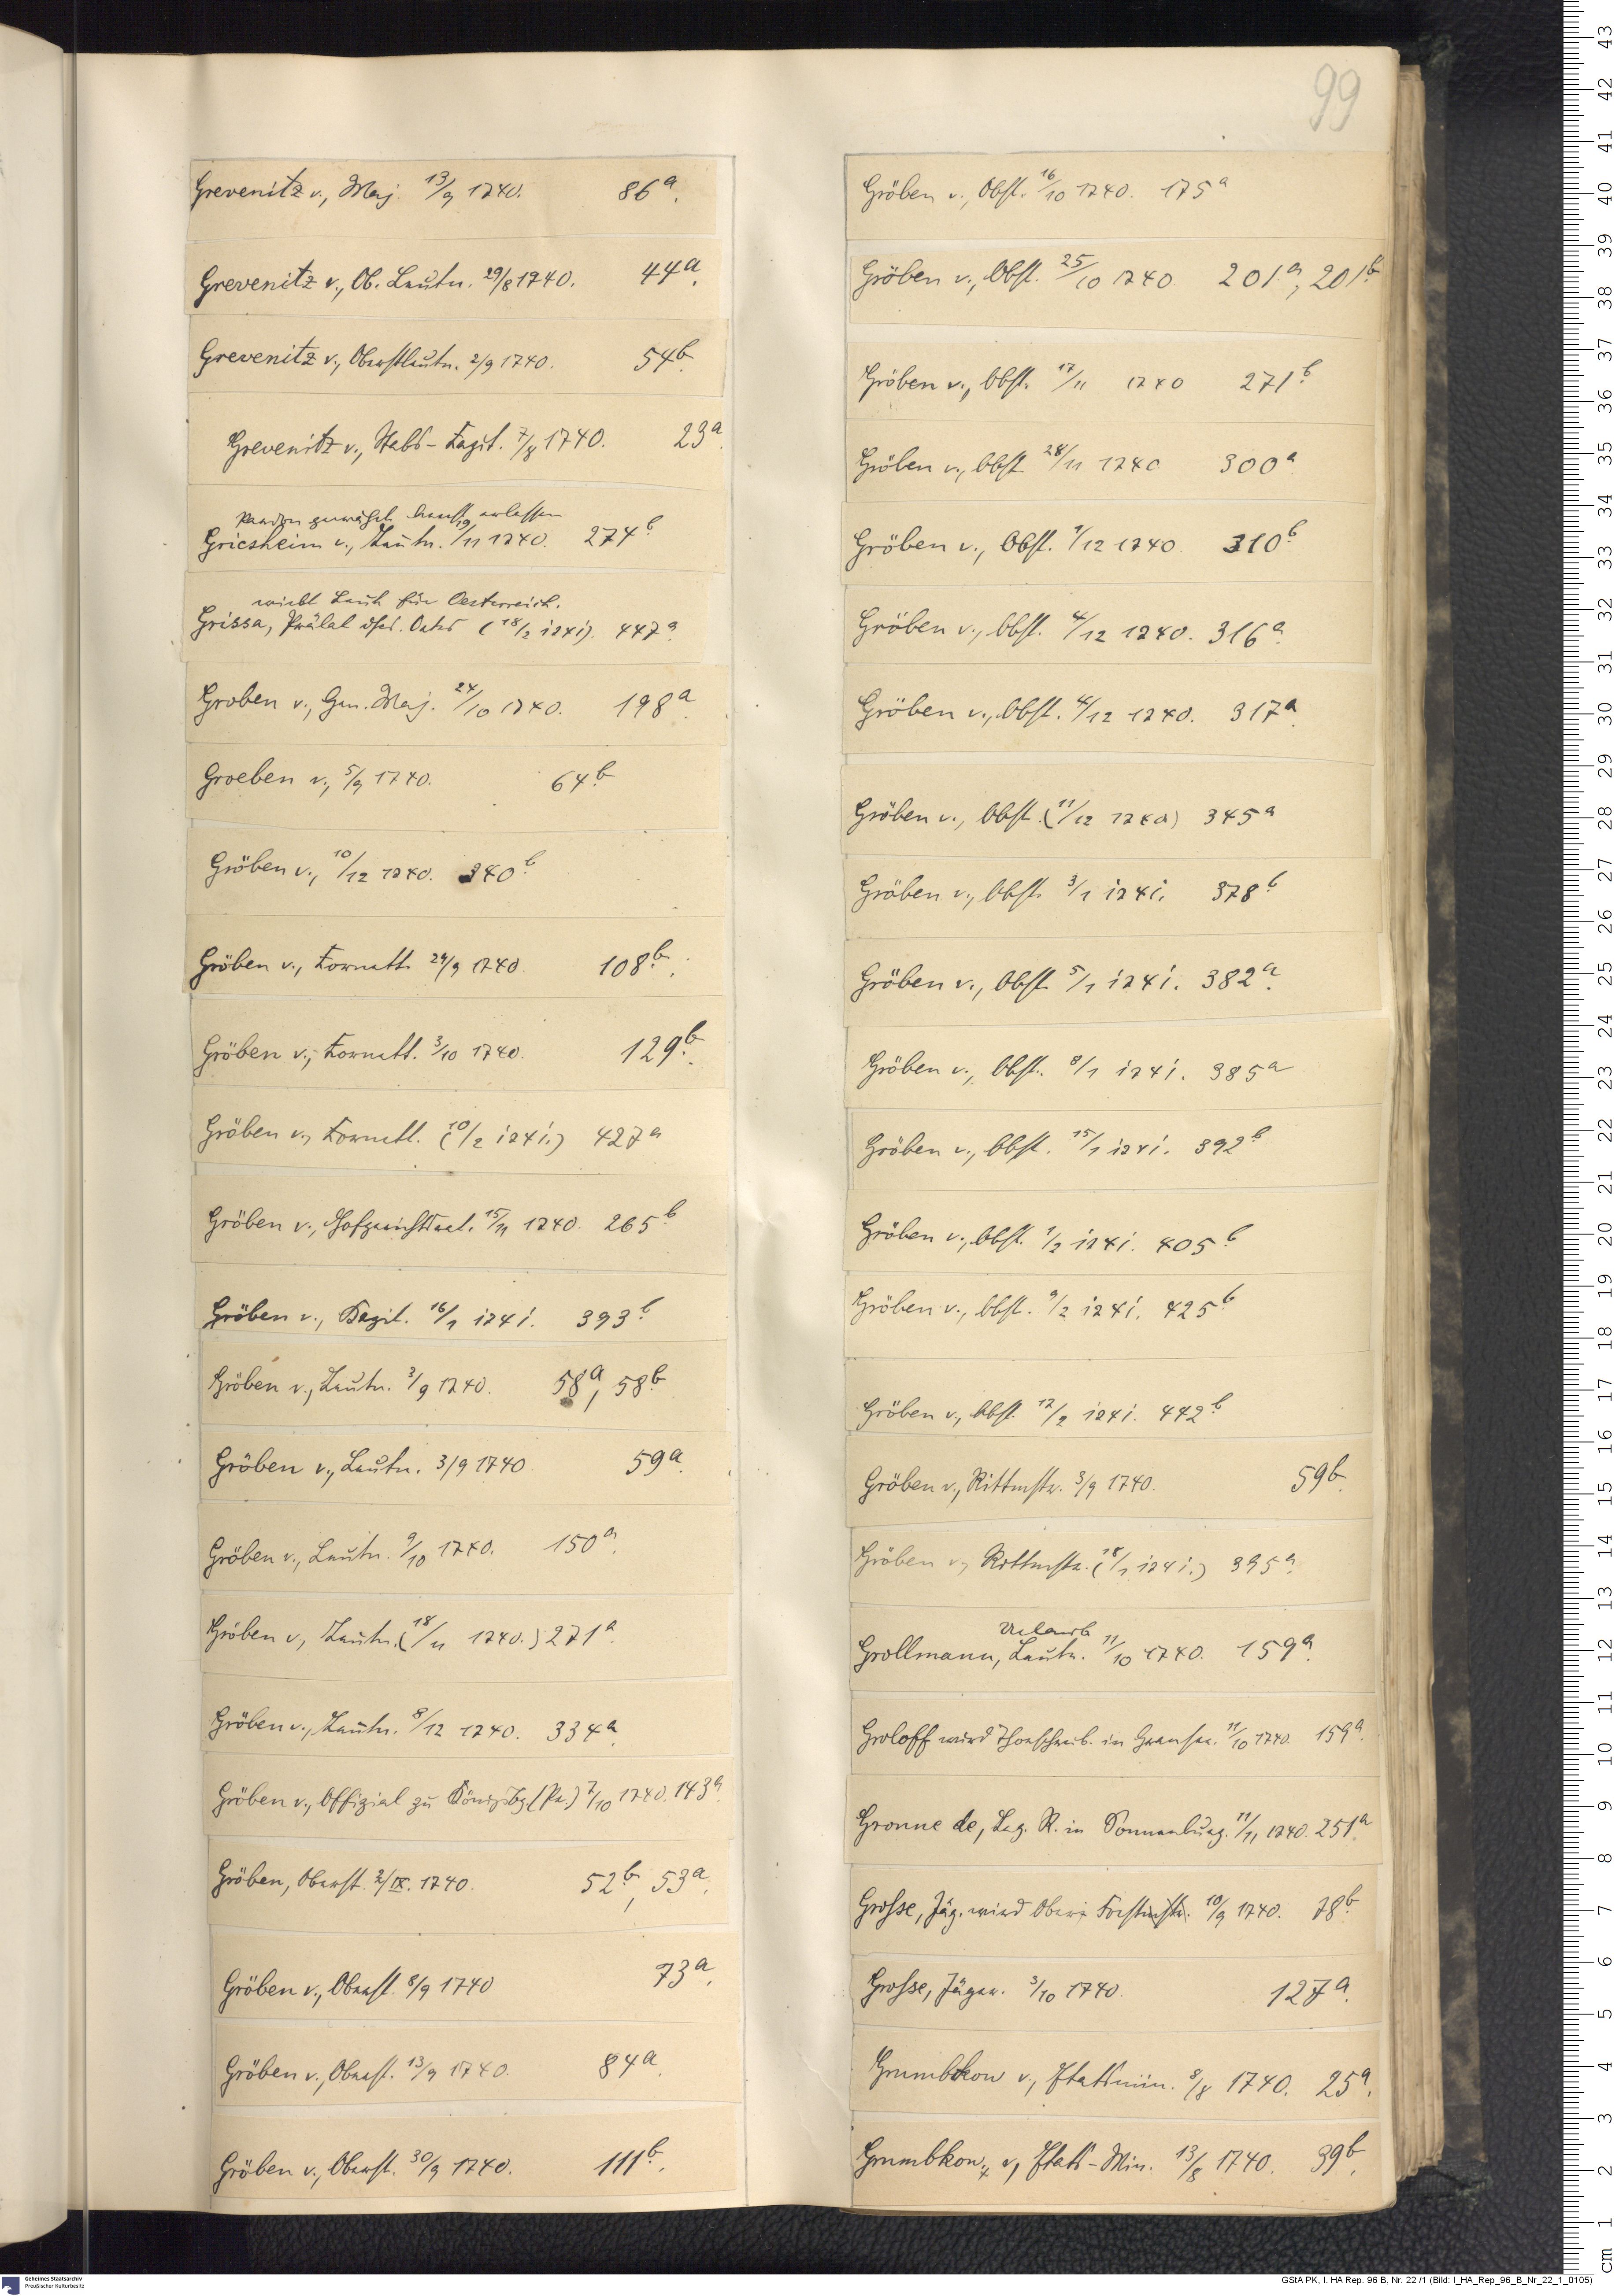 99
Grevenitz v., Maj. 13/9 1740. 86a.
Grevenitz v., Ob. Leutn. 29/8 1740. 44a.
Grevenitz v., Oberstleutn. 2/9 1740. 54b.
Grevenitz v., Stabs-Kapit. 7/8 1740. 23a.
Pardon erlassen
Griesheim v., Leutn. 19/11 1740. 274b.
wirbt Leute für Oesterreich.
Grissa, Prälat Ordes (18/2 1741). 447a.
Groben v., Gen. Maj. 24/10 1740. 198a.
Groeben v., 5/9 1740. 64b.
Gröben v., 10/12 1740. 340b.
Gröben v., Kornett. 24/9 1740. 108b.
Gröben v., Kornett. 3/10 1740. 129b.
Gröben v., Kornett. (10/2 1741.) 427a
Gröben v., Hofgerichtsrat. 15/11 1740. 265b.
Gröben v., Kapit. 16/1 1741. 393b.
Gröben v., Leutn. 3/9 1740. 58a, 58b.
Gröben v., Leutn. 3/9 1740 59a.
Gröben v., Leutn. 9/10 1740. 150a.
Gröben v., Leutn. (18/11 1740.) 271a.
Gröben v., Leutn. 8/12 1740. 334a.
Gröben v., Offizial zu Königsbg. (Pr.) 7/10 1740. 143a.
Gröben, Oberst. 2/IX. 1740. 52b, 53a.
Gröben v., Oberst. 8/9 1740 73a.
Gröben v., Oberst. 13/9 1740. 84a.
Gröben v., Oberst. 30/9 1740. 111b.
Gröben v., Obst. 16/10 1740. 175a
Gröben v., Obst. 25/10 1740. 201a, 201b.
Gröben v., Obst. 17/11 1740 271b.
Gröben v., Obst. 28/11 1740 300a.
Gröben v., Obst. 1/12 1740. 310b.
Gröben v., Obst. 4/12 1740. 316a.
Gröben v., Obst. 4/12 1740. 317a.
Gröben v., Obst. (11/12 1740) 345a
Gröben v., Obst. 3/1 1741. 378b.
Gröben v., Obst. 5/1 1741. 382a.
Gröben v., Obst. 8/1 1741. 385a
Gröben v., Obst. 15/1 1741. 392b.
Gröben v., Obst. 1/2 1741. 405b.
Gröben v., Obst. 9/2 1741. 425b.
Gröben v., Obst. 17/2 1741. 442b.
Gröben v., Rittmstr. 3/9 1740. 59b.
Gröben v., Rittmstr. (18/1 1741.) 395a.
Urlaub
Grollmann, Leutn. 11/10 1740. 159a.
Groloff wird Thorschreib. in Gransee. 11/10 1740. 159a.
Gronne de, Leg. R. in Sonnenburg. 11/11 1740. 251a.
Grosse, Jäg. wird Ober Forstmstr. 10/9 1740. 78b.
Grosse, Jäger. 3/10 1740. 127a.
Grumbkow v., Etatsmin. 8/8 1740. 25a.
Grumbkow, v., Etats-Min. 13/8 1740. 39b.
Geheimes Staatsarchiv
Preußischer Kulturbesitz
GStA PK, I. HA Rep. 96 B, Nr. 22 /1 (Bild: I_HA_Rep_96_B_Nr_22_1_0105)
cm 1 2 3 4 5 6 7 8 9 10 11 12 13 14 15 16 17 18 19 20 21 22 23 24 25 26 27 28 29 30 31 32 33 34 35 36 37 38 39 40 41 42 43